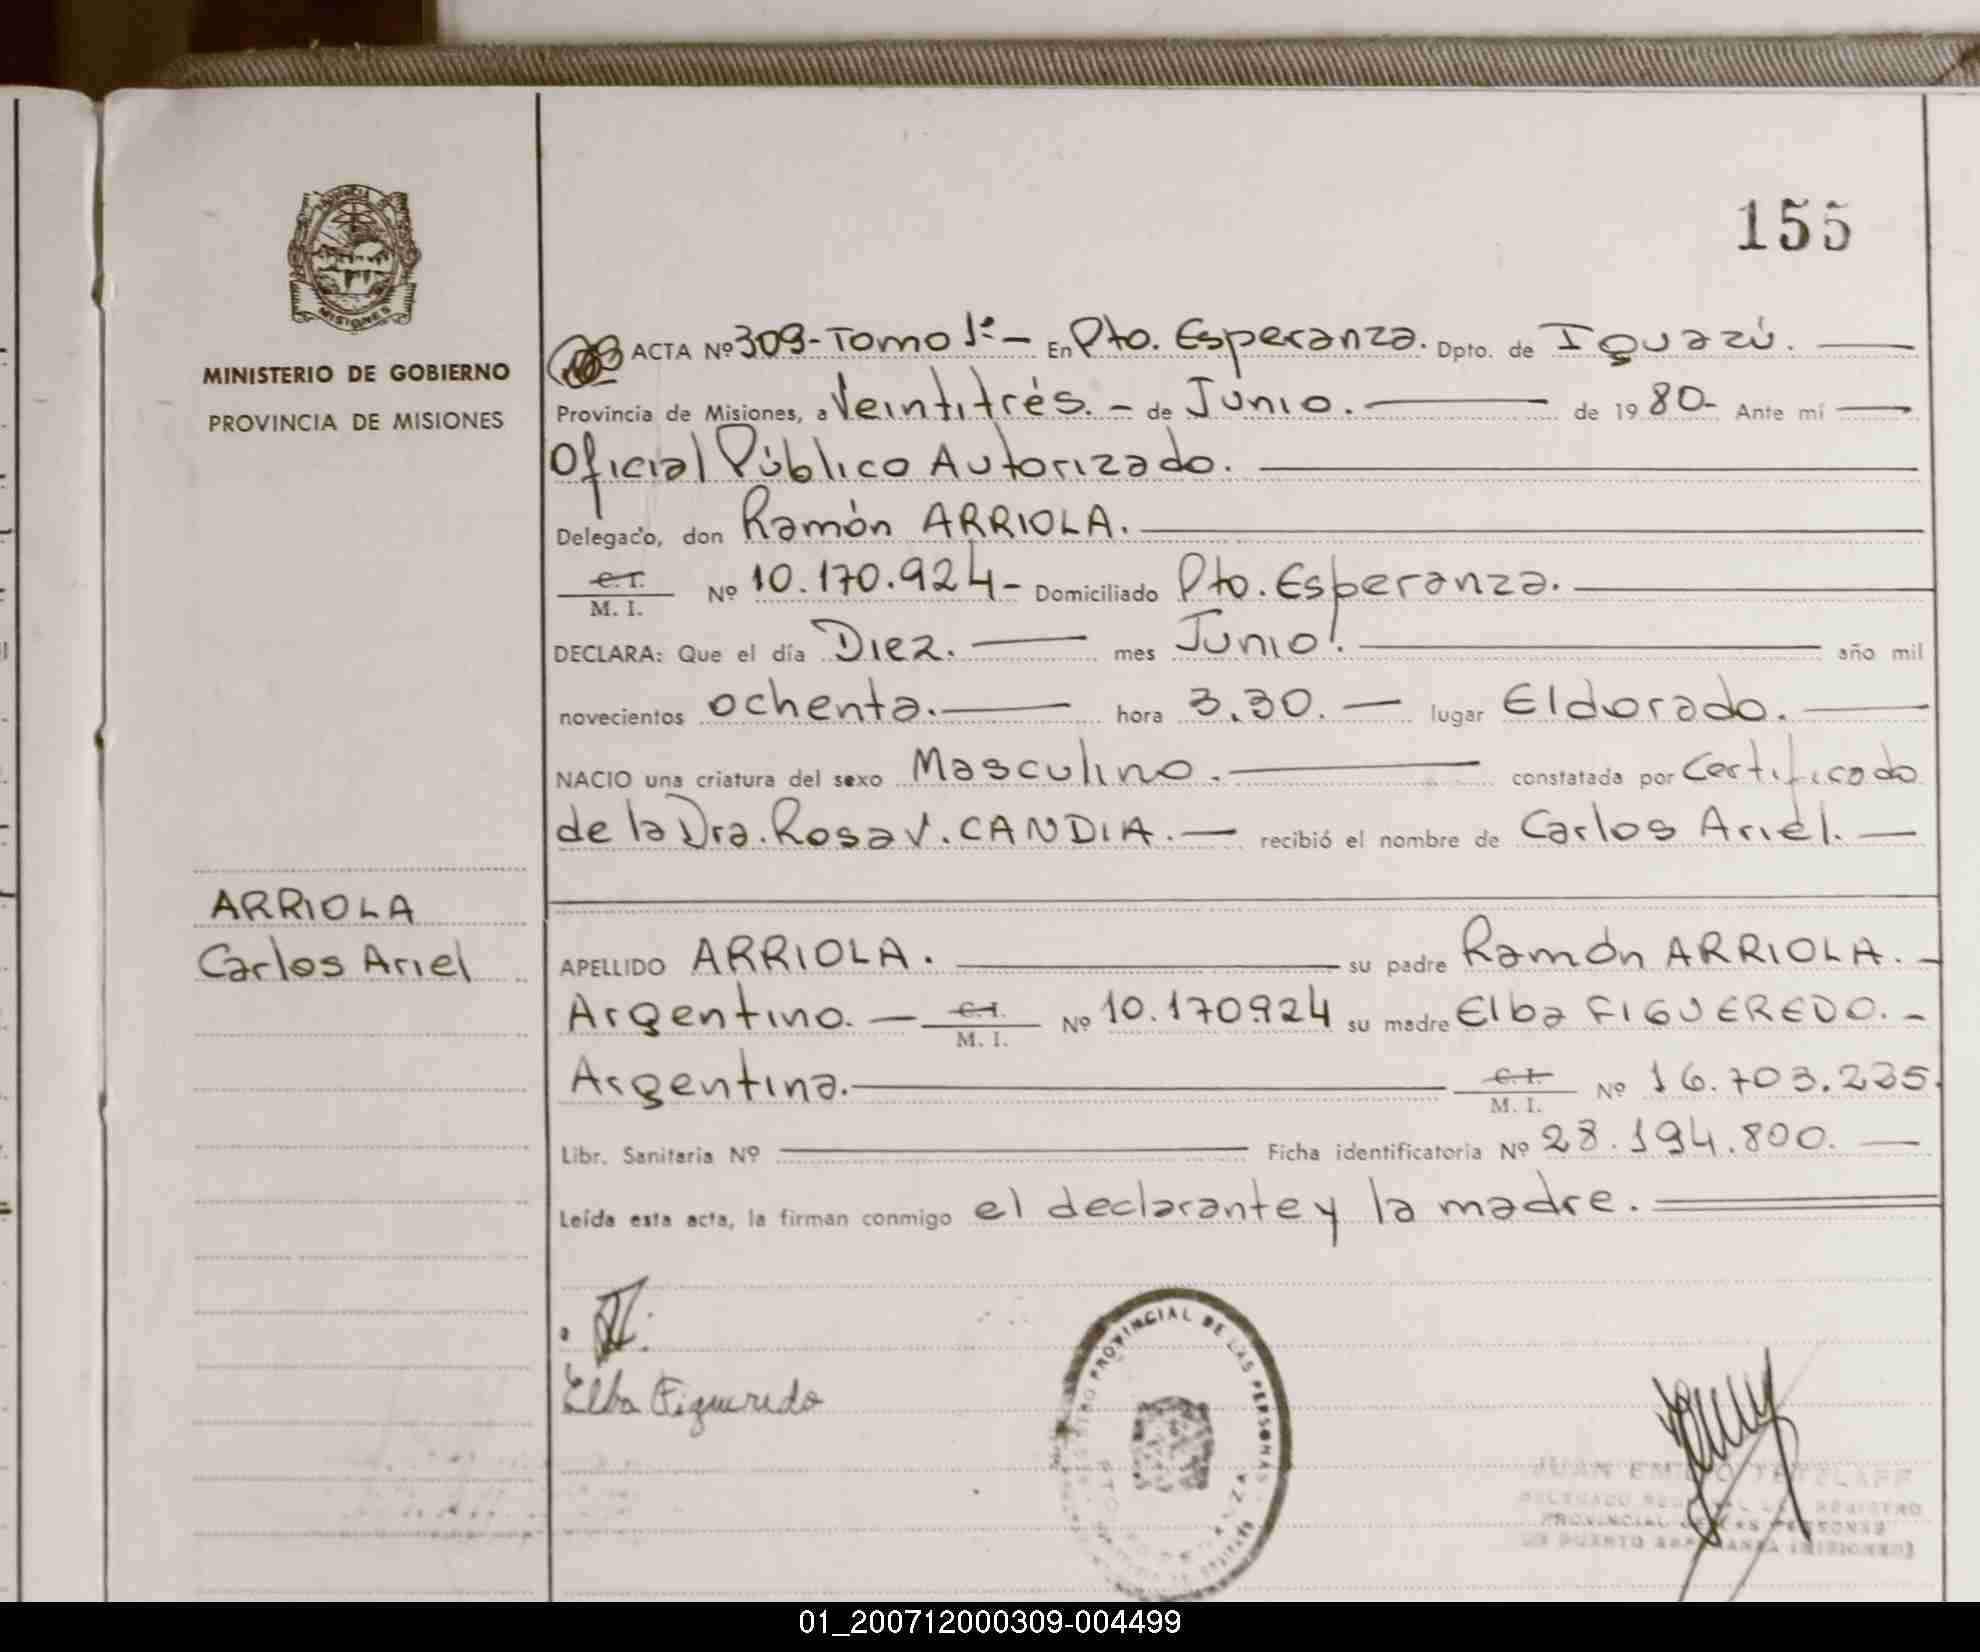 155
MISIONES
MINISTERIO DE GOBIERNO
PROVINCIA DE MISIONES
ACTA Nº 309-Tomo 1º- En Pto. Esperanza. Dpto. de Iguazú.
Provincia de Misiones, a Veintitrés.- de Junio. de 1980- Ante mí
Oficial Público Autorizado.
Delegado, don Ramón ARRIOLA.
C.I.
M. I. Nº 10.170.924- Domiciliado Pto. Esperanza.
DECLARA: Que el día Diez. mes Junio. año mil
novecientos ochenta. hora 3.30. lugar Eldorado.
NACIO una criatura del sexo Masculino. constatada por Certificado
de la Dra. Rosa V. CANDIA. recibió el nombre de Carlos Ariel.
ARRIOLA
Carlos Ariel
APELLIDO ARRIOLA. su padre Ramón ARRIOLA.-
Argentino. C.I.
M. I. Nº 10.170924 su madre Elba FIGUEREDO.-
Argentina. C.I.
M. I. Nº 16.703.235.
Libr. Sanitaria Nº Ficha identificatoria Nº 28.194.800.
Leída esta acta, la firman conmigo el declarante y la madre.
Elba Figueredo
PROVINCIAL DE LAS PERSONAS
JUAN EMILIO
REGISTRO
PROVINCIAL DE LAS PERSONAS
EN PUERTO ESPERANZA (MISIONES)
01_200712000309-004499